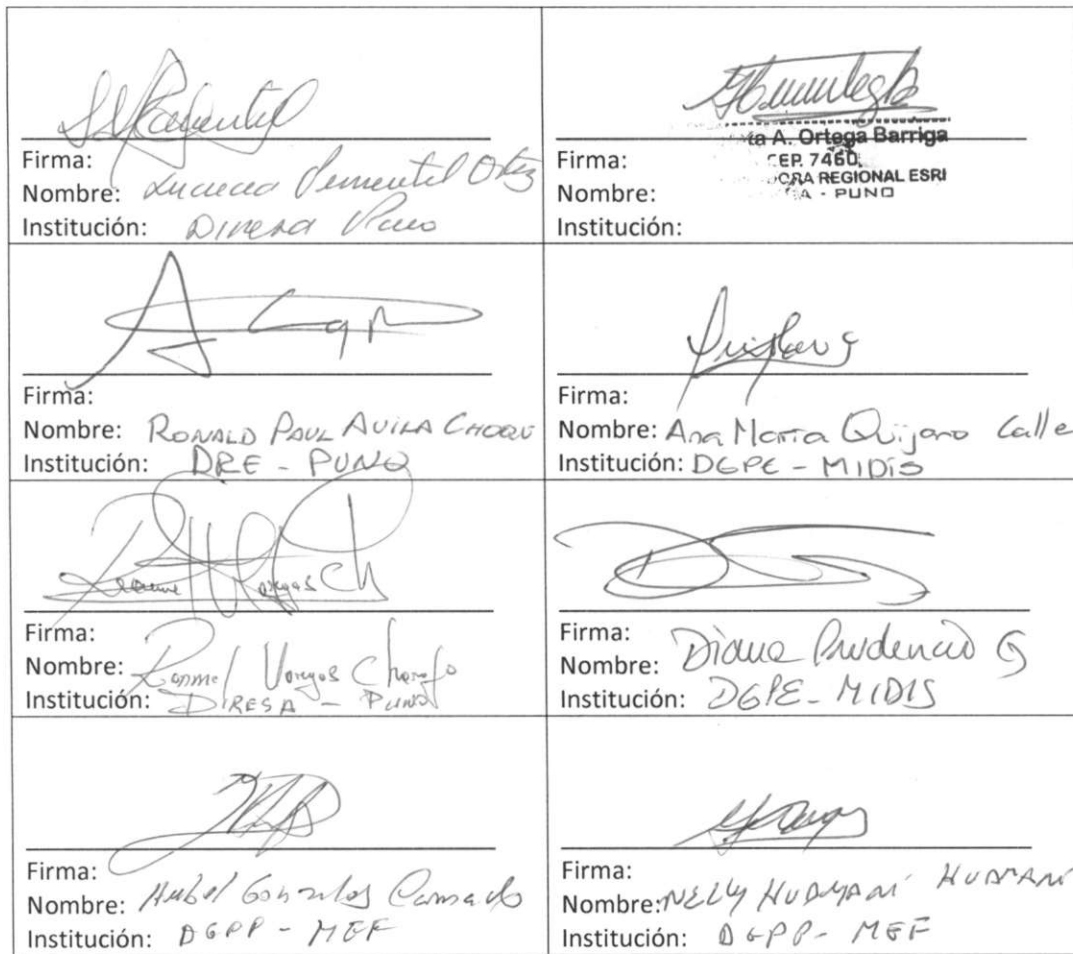 Firma:
Nombre: Pimentel Ortiz
Institución: Diresa Puno
ta A. Ortega Barriga
CEP. 7460
ORA REGIONAL ESRI
A - PUNO
Firma:
Nombre:
Institución:
Firma:
Nombre: RONALD PAUL AVILA CHOQUE
Institución: DRE - PUNO
Firma:
Nombre: Ana María Quijano Calle
Institución: DGPE - MIDIS
Vargas Ch
Firma:
Nombre: Vargas
Institución: DIRESA - PUNO
Firma:
Nombre: Diana Prudencio G
Institución: DGPE - MIDIS
Firma:
Nombre: Gonzales
Institución: DGPP - MEF
Firma:
Nombre: NELLY HUAMANÍ HUAMANÍ
Institución: DGPP - MEF